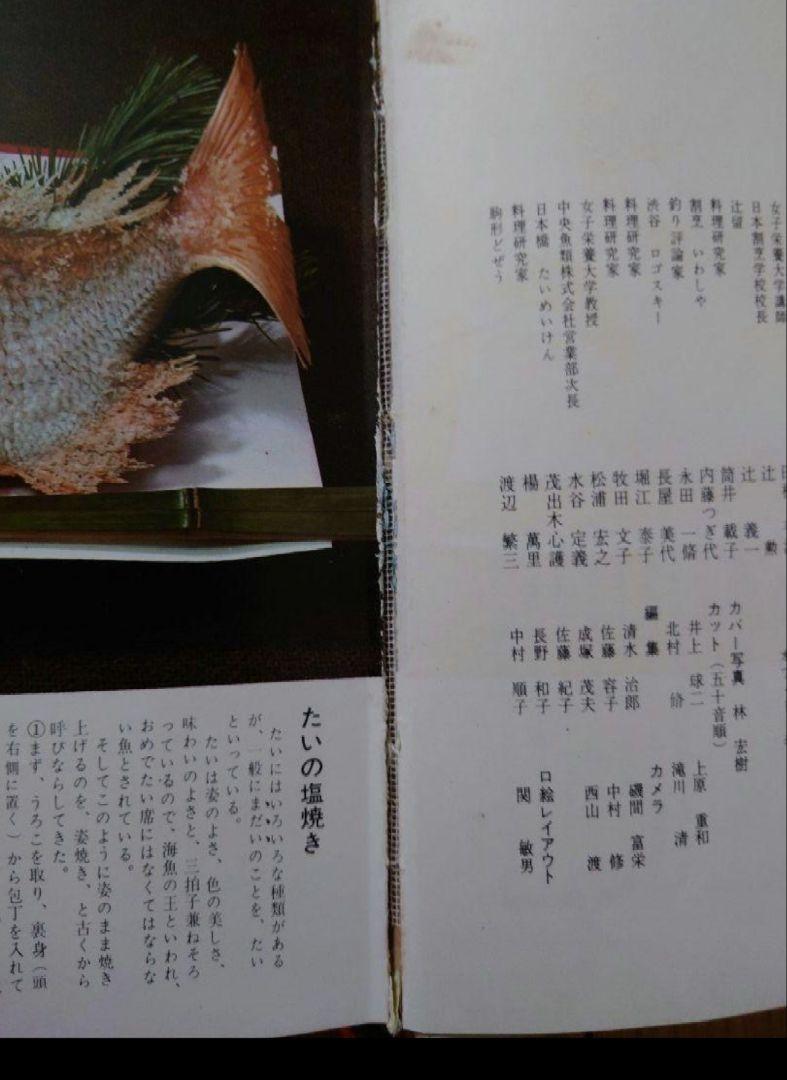 女子栄養大学講師
日本割烹学校校長 辻 勲
辻留 辻 義一
料理研究家 筒井 載子
割烹 いわしや 内藤つぎ代
釣り評論家 永田 一脩
渋谷 ロゴスキー 長屋 美代
料理研究家 堀江 泰子
料理研究家 牧田 文子
女子栄養大学教授 松浦 宏之
中央魚類株式会社営業部次長 水谷 定義
日本橋 たいめいけん 茂出木心護
料理研究家 楊 萬里
駒形どぜう 渡辺 繁三
カバー写真 林 宏樹
カット(五十音順)
井上 球二
北村 脩
上原 重和
滝川 清
編集
清水 治郎
佐藤 容子
成塚 茂夫
佐藤 紀子
長野 和子
中村 順子
カメラ
磯間 富栄
中村 修
西山 渡
口絵レイアウト
関 敏男
たいの塩焼き
たいにはいろいろな種類がある
が、一般にまだいのことを、たい
といっている。
たいは姿のよさ、色の美しさ、
味わいのよさと、三拍子兼ねそろ
っているので、海魚の王といわれ、
おめでたい席にはなくてはならな
い魚とされている。
そしてこのように姿のまま焼き
上げるのを、姿焼き、と古くから
呼びならしてきた。
①まず、うろこを取り、裏身(頭
を右側に置く)から包丁を入れて